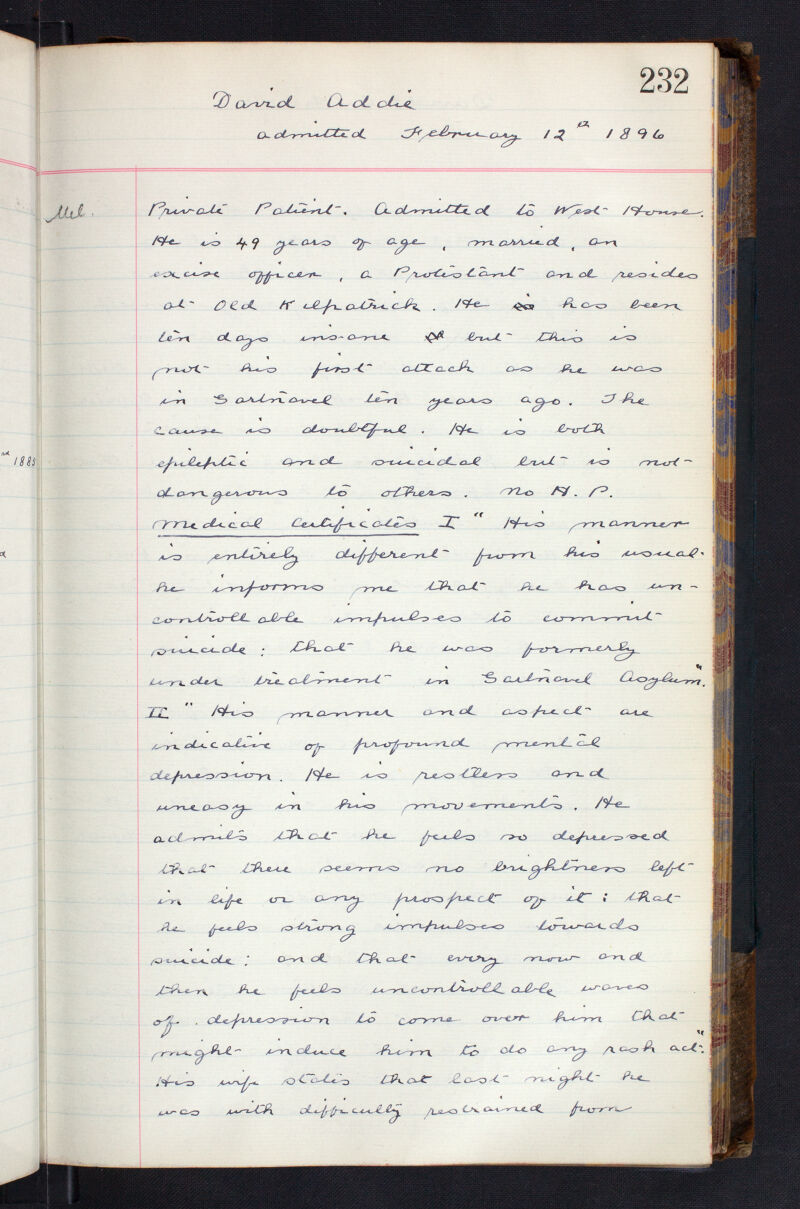 232
David Addie
admitted February 12th 1896
Mel.
Private Patient. Admitted to West House.
He is 49 years of age, married, an
excise officer, a Protestant and resides
at Old Kilpatrick. He is has been
ten days insane but this is
not his first attack as he was
in Gartnavel ten years ago. The
cause is doubtful. He is both
epileptic and suicidal but is not
dangerous to others. No H. P.
Medical Certificates I " His manner
is entirely different from his usual.
he informs me that he has un-
controllable impulses to commit
suicide: that he was formerly
under treatment in Gartnavel Asylum".
II " His manner and aspect are
indicative of profound mental
depression. He is restless and
uneasy in his movements. He
admits that he feels so depressed
that there seems no brightness left
in life or any prospect of it: that
he feels strong impulses towards
suicide: and that every now and
then he feels uncontrollable waves
of depression to come over him that
might induce him to do any rash act".
His wife states that last night he
was with difficulty restrained from